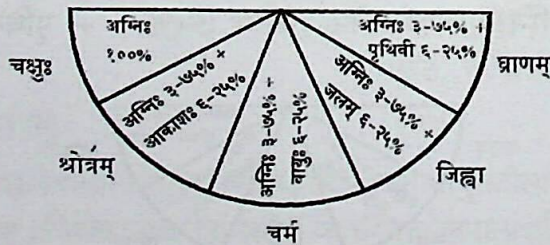 अग्निः
१००%
चक्षुः
अग्निः ३-७५% +
आकाशः ६-२५%
श्रोत्रम्
अग्निः ३-७५% +
वायुः ६-२५%
चर्म
अग्निः ३-७५% +
जलम् ६-२५%
जिह्वा
अग्निः ३-७५% +
पृथिवी ६-२५%
घ्राणम्